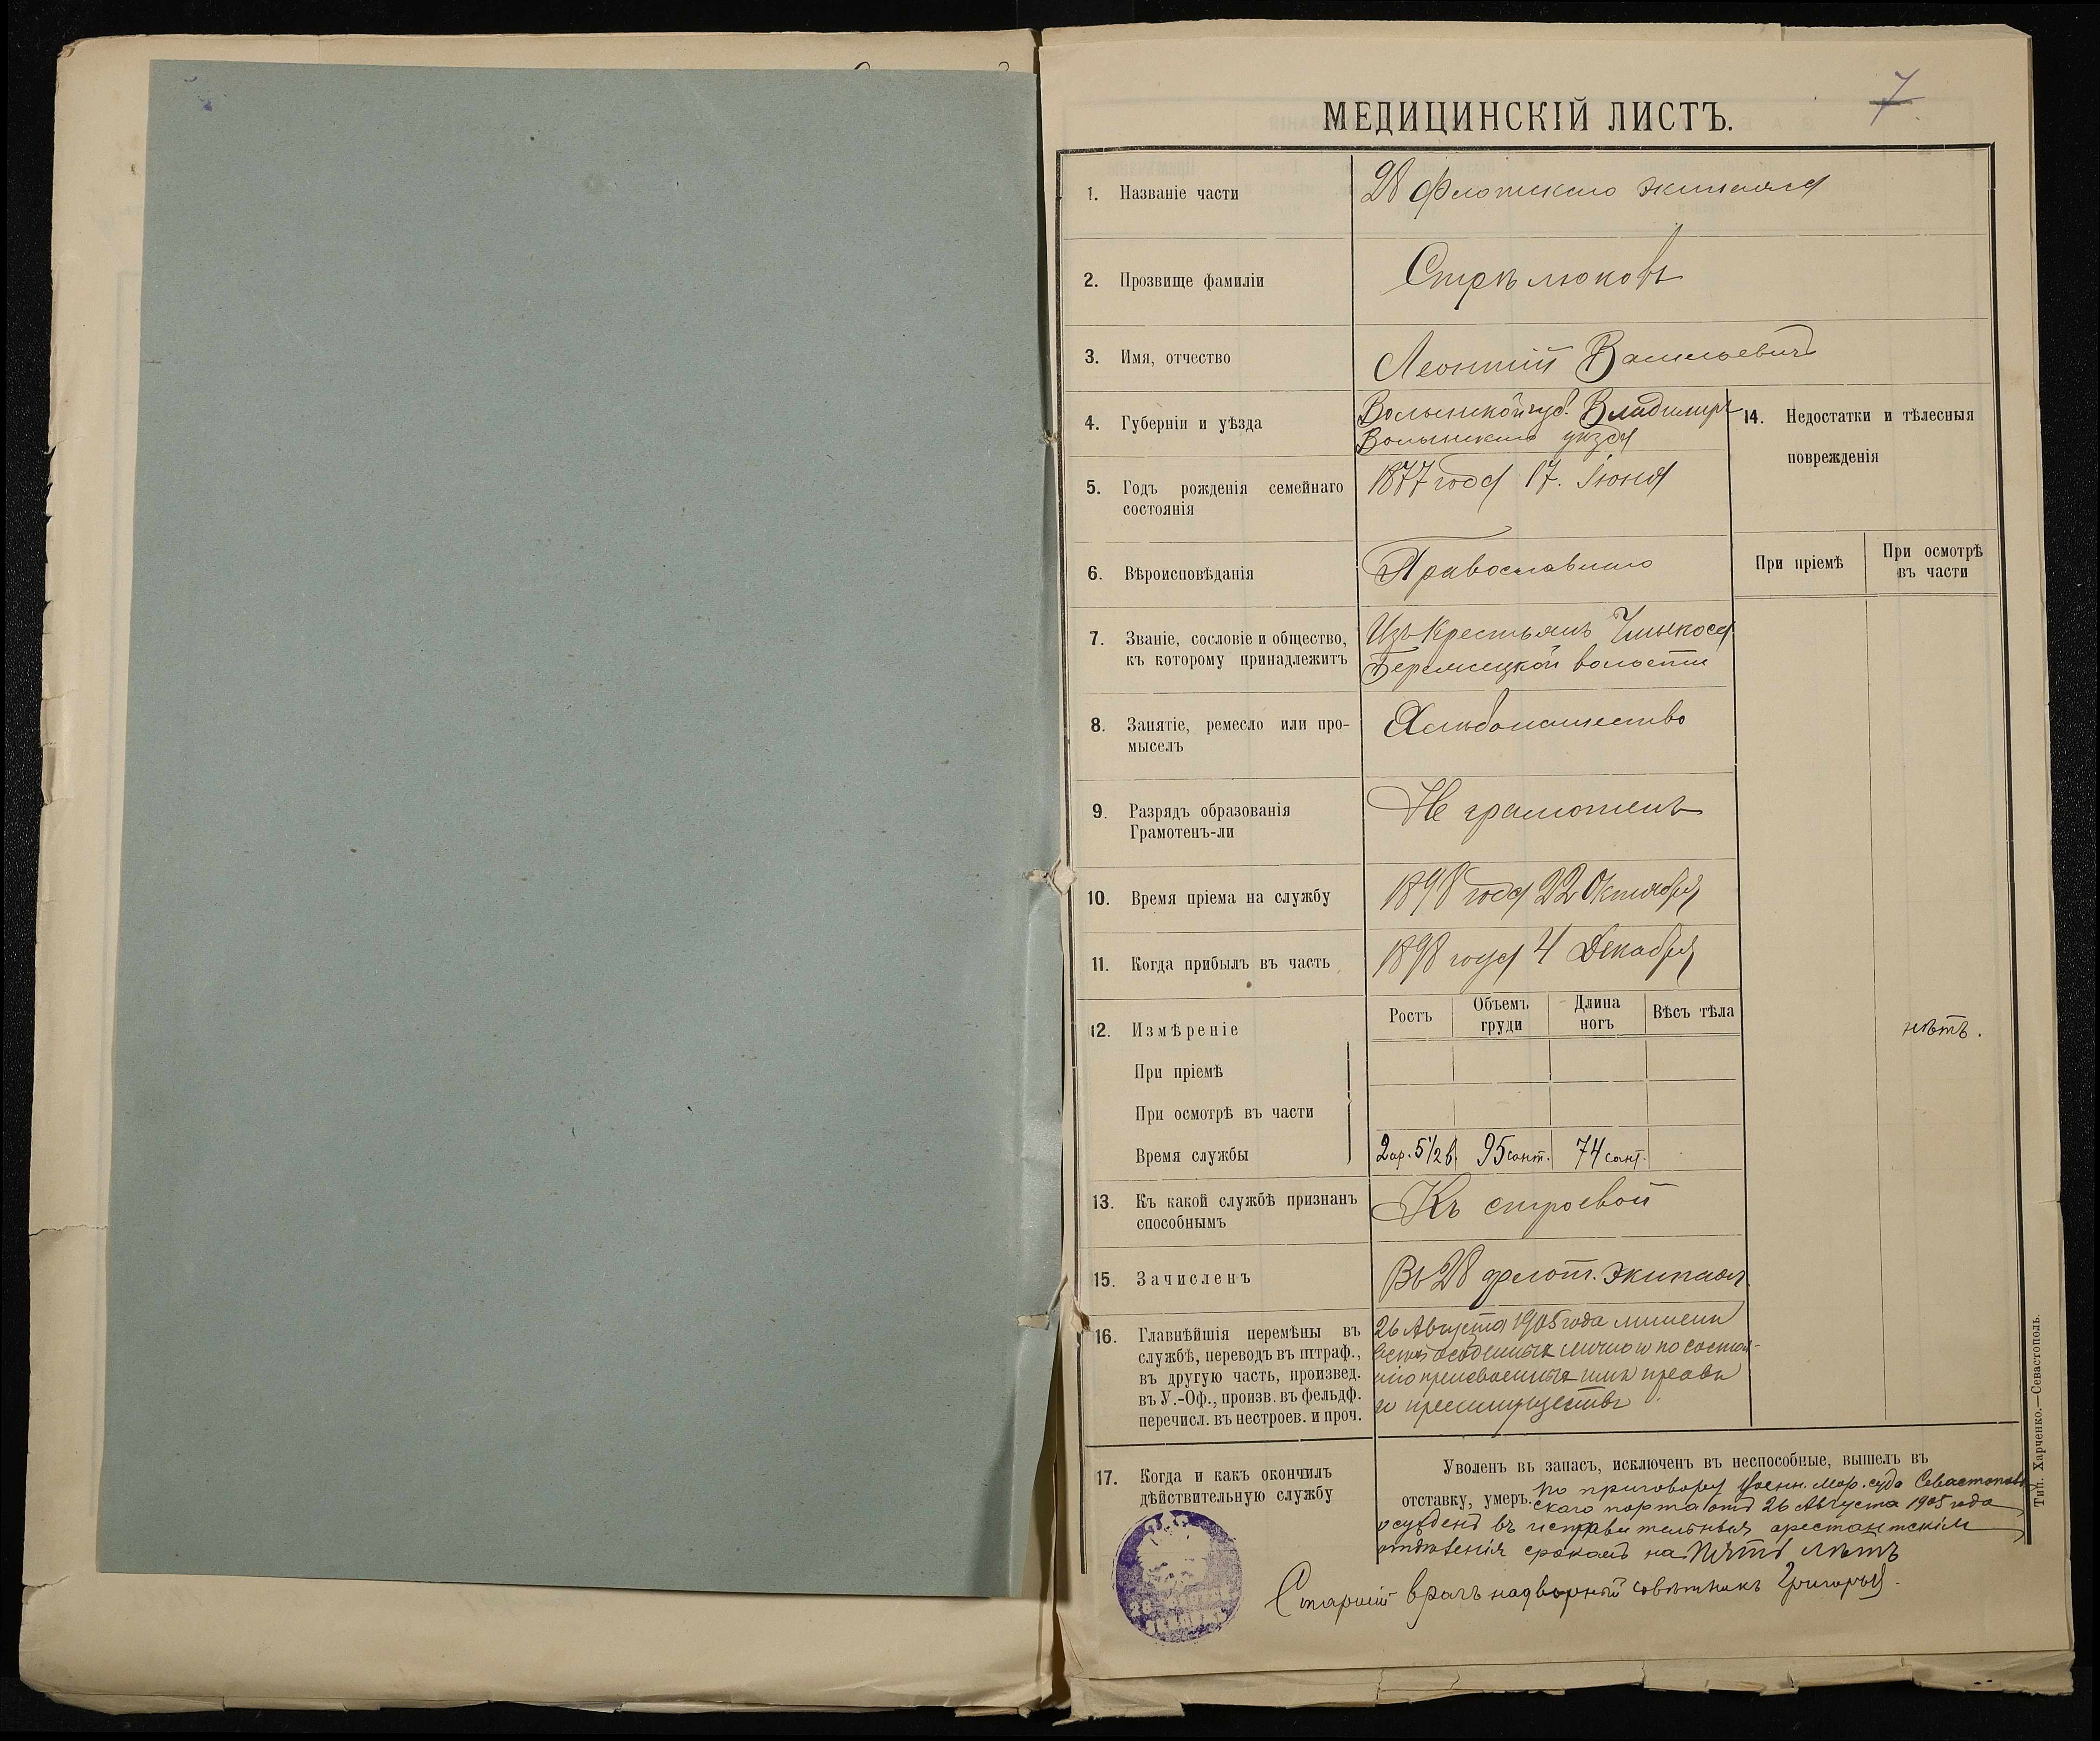 7
МЕДИЦИНСКІЙ ЛИСТЪ.
1. Названіе части
28 Флотскаго экипажа
2. Прозвище фамиліи
Стрѣлюковъ
3. Имя, отчество
Леонтій Васильевичъ
4. Губерніи и уѣзда
Волынской губ. Владимиръ
Волынскаго уѣзда
5. Годъ рожденія семейнаго
состоянія
1877 года 17. Іюня
6. Вѣроисповѣданія
Православнаго
7. Званіе, сословіе и общество,
къ которому принадлежитъ
Изъ Крестьянъ
волости
8. Занятіе, ремесло или про-
мыселъ
Хлѣбопашество
9. Разрядъ образованія
Грамотенъ-ли
Не грамотенъ
10. Время пріема на службу
1898 года 22 Октября
11. Когда прибылъ въ часть
1898 года 4 Декабря
12. Измѣреніе
Ростъ
Объемъ
груди
Длина
ногъ
Вѣсъ тѣла
При пріемѣ
При осмотрѣ въ части
Время службы
2 ар. 5 1/2 в.
95 сант.
74 сант.
13. Къ какой службѣ признанъ
способнымъ
Къ строевой
14. Недостатки и тѣлесныя
поврежденія
При пріемѣ
При осмотрѣ
въ части
нѣтъ.
15. Зачисленъ
Въ 28 флот. экипаж
16. Главнѣйшія перемѣны въ
службѣ, переводъ въ штраф.,
въ другую часть, произвед.
въ У.-Оф., произв. въ фельдф.
перечисл. въ нестроев. и проч.
26 Августа 1905 года лишенъ
всѣхъ особенныхъ лично и по состоя-
нію присвоенныхъ правъ
и преимуществъ
17. Когда и какъ окончилъ
дѣйствительную службу
Уволенъ въ запасъ, исключенъ въ неспособные, вышелъ въ
отставку, умеръ. по приговору Военн. Мор. суда Севастополь
скаго порта отъ 26 Августа 1905 года
осужденъ въ исправительныя арестантскія
отдѣленія срокомъ на Пять лѣтъ
Старшій врачъ надворный совѣтникъ
Тип. Харченко.—Севастополь.